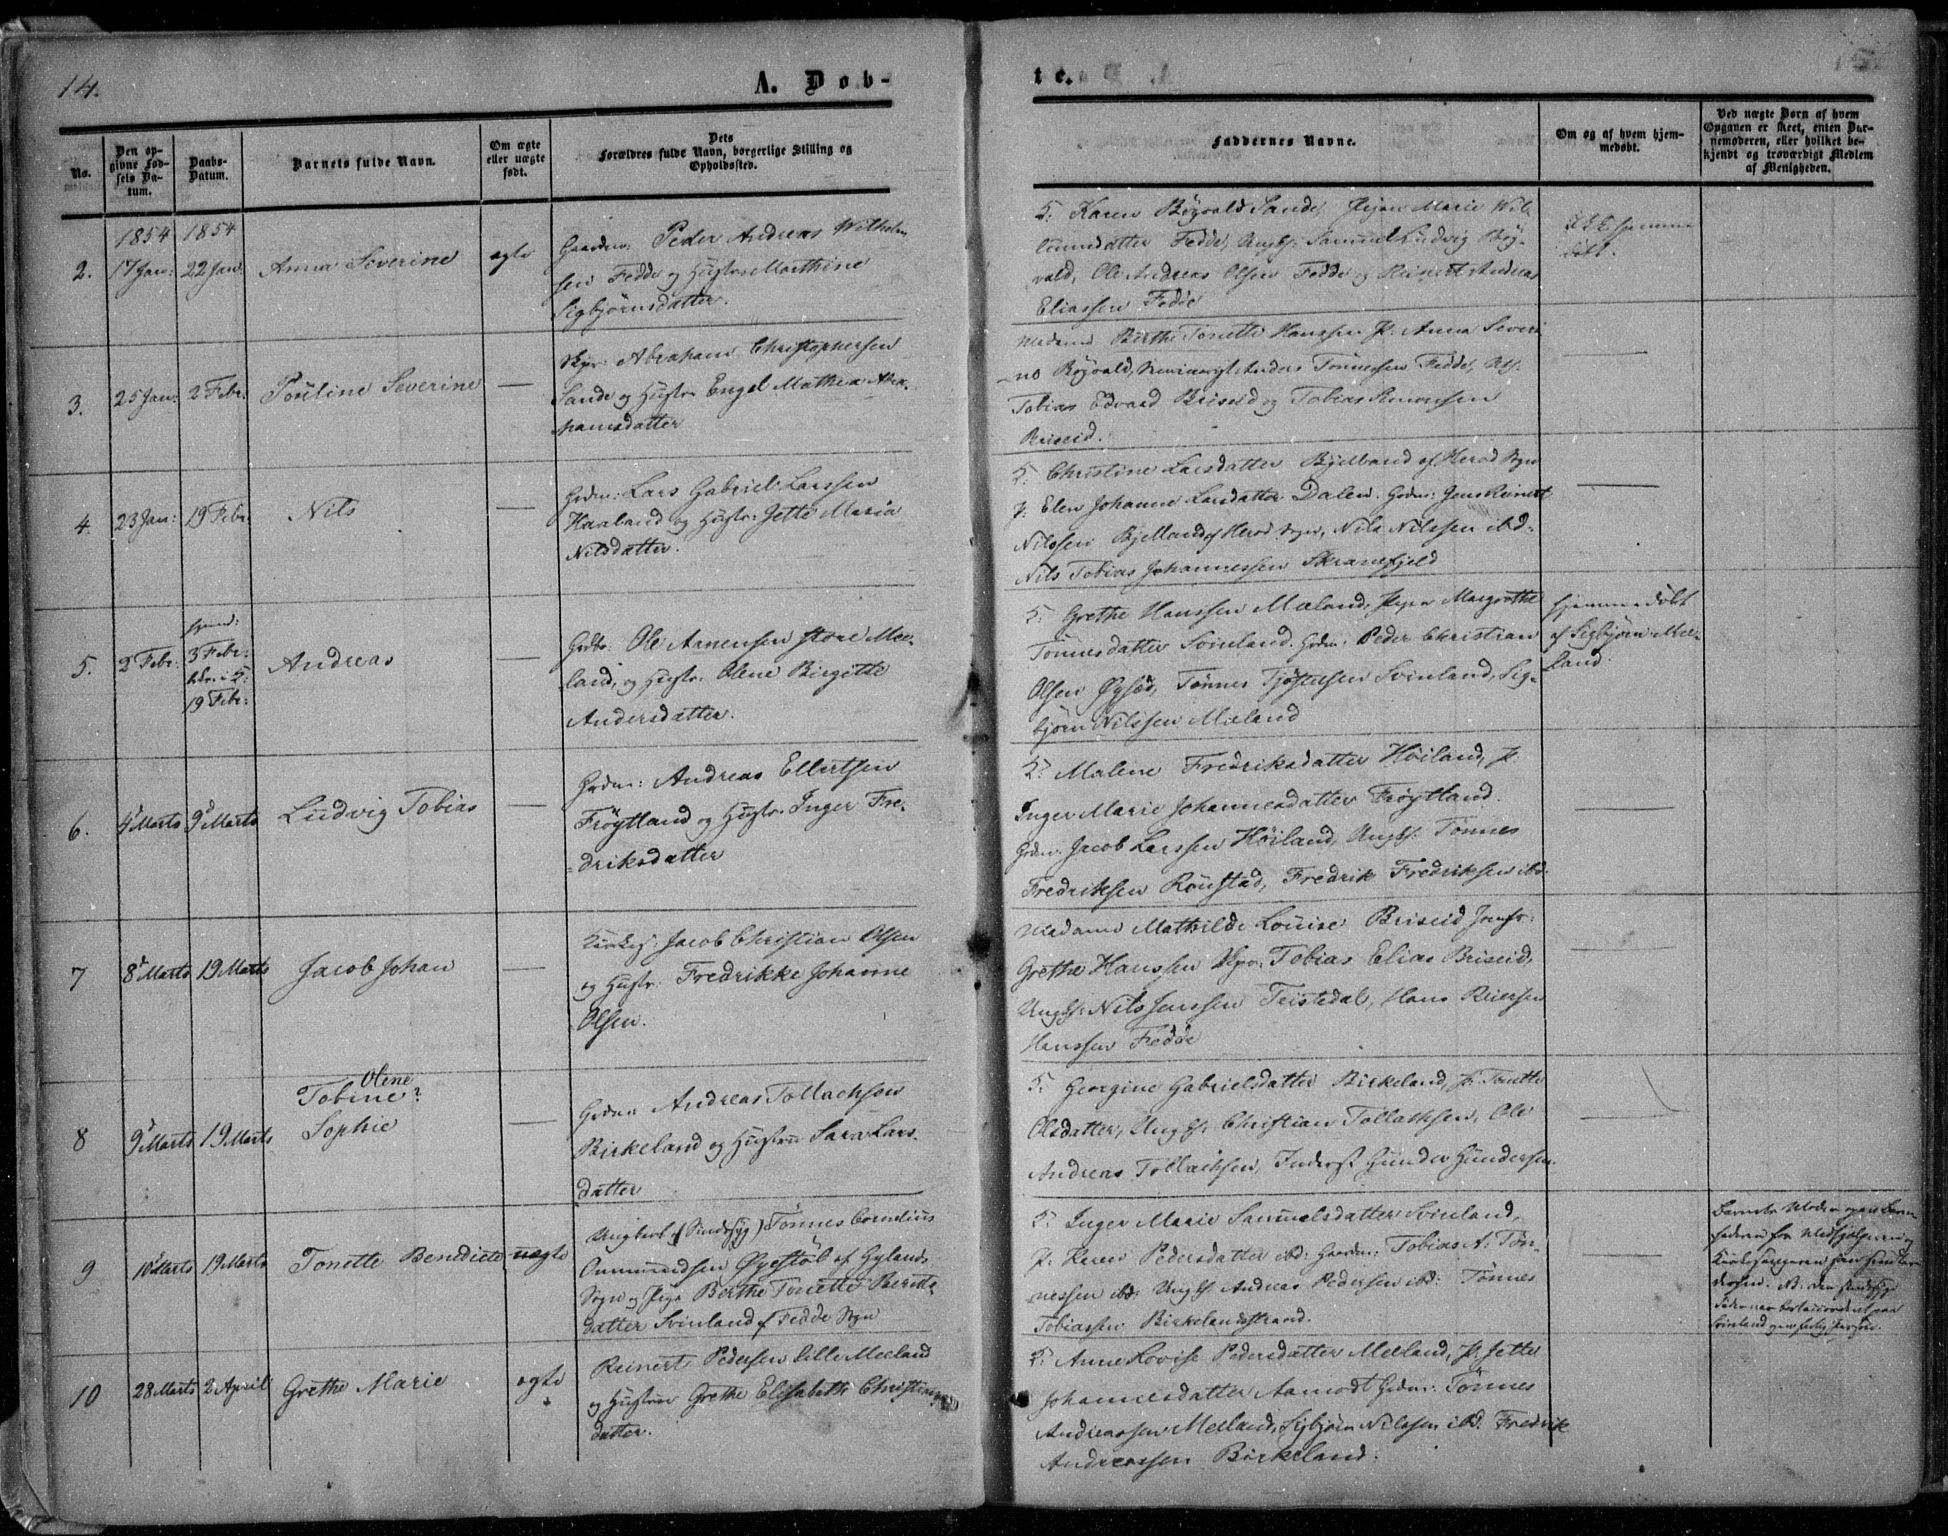 14.
A. Døb-
te.
No.
Den op-
givne Fød-
sels Da-
tum.
Daabs-
Datum.
Barnets fulde Navn.
Om ægte
eller uægte
født.
Dets
Forældres fulde Navn, borgerlige Stilling og
Opholdssted.
Faddernes Navne.
Om og af hvem hjem-
medøbt.
Ved uægte Børn af hvem
Opgaven er skeet, enten Bar-
nemoderen, eller hvilket be-
kjendt og troværdigt Medlem
af Menigheden.
1854 1854
2. 17 Jan: 22 Jan: Anna Severine ægte
Gaardm: Peder Andreas Wilhelm
sen Fedde og Hustr: Marthine
Sigbjørnsdatter.
5: Karen Røgvald Sande, Pigen Marie Wil
Fedde, Ungk: Samuel Ludvig Røg-
vald, Ole Andreas Olsen Fedde og Reinert Andreas
Eliassen Fedde
døbt.
3. 25 Jan: 2 Febr. Pouline Severine —
Skpr: Abraham Christophersen
Sande og Hustr: Engel Mathea Abra-
hamsdatter
Madam Birthe Tonette Hanssen P. Anna Severi
-ne Røgvald, Anders Tønnessen Fedde,
Tobias Edvard Briseid og Tobias Simonsen
Briseid.
4. 23 Jan: 19 Febr. Nils —
Grdm: Lars Gabriel Larssen
Haaland og Hustr: Jette Maria
Nilsdatter.
5: Christine Larsdatter Bjelland af Herad Sogn
P: Elen Johanne Larsdatter Dalen. Grdm: Jens Reinert
Nilssen Bjelland af Herad Sogn, Nils Nilssen ibd:
Nils Tobias Johannessen Skranefjeld
5. 2 Febr: Hjemd: 3 Febr: i 5: 19 Febr: Andreas —
Ole Arnensen store Mee-
land, og Hustr: Olene Birgitte
Andersdatter.
5: Grethe Hanssen Mæland, Pigen Margrethe
Tønnesdatter Svinland. Grdm: Peder Christian
Olsen Øysæd, Tønnes Tjøstelsen Svinland, Sig-
bjørn Nilssen Mæland
Hjemmedøbt
af Sigbjørn Mee-
land.
6. 4 Marts 9 Marts Ludvig Tobias —
Grdm: Andreas Ellertsen
Frøytland og Hustr: Inger Fre-
-driksdatter
5: Malene Fredriksdatter Høiland, P
Inger Marie Johannesdatter Frøytland.
Grdm: Jacob Larssen Høiland, Ungk: Tønnes
Fredriksen Rønstad, Fredrik Fredriksen ibd.
7 8 Marts 19 Marts Jacob Johan —
Jacob Christian Olsen
og Hustr: Fredrikke Johanne
Olsen.
Madame Mathilde Louise Briseid Jomfr:
Grethe Hanssen Skpr: Tobias Elias Briseid,
Ungk: Nils Jenssen Teistedal, Hans Reiersen
Hanssen Fedde
8 9 Marts 19 Marts Tobine? Olene
Sophie —
Grdm: Andreas Tollachsen
Birkeland og Hustru Sara Lars-
datter
5: Georgine Gabrielsdatter Birkeland, P: Tonette
Olsdatter, Ungk: Christian Tollachsen, Ole
Andreas Tollachsen, Inderst Gunder Gundersen.
9 10 Marts 19 Marts Tonette Bendicte uægte
Ungkarl (Sindssyg) Tønnes Cornelius
Ommundsen Øyestøl af Gylands
Sogn og Pige Berthe Tonette Berits-
datter Svinland af Fedde Sogn
5: Inger Marie Samuelsdatter Svinland,
P: Karen Pedersdatter ibd: Gaardm: Tobias A. Tøn-
nessen ibd: Ungk: Andreas Pedersen ibd: Tønnes
Tobiassen Birkelandsstrand.
Barnets Moder
10 28 Marts 2 April Grethe Marie ægte
Reinert Pedersen lille Meeland
og Hustru Grethe Elisabeth Christians
datter.
5: Anne Lovise Pedersdatter Meeland, P: Jette
Johannesdatter Aamodt Grdm: Tønnes
Andreassen Meeland, Sigbjørn Nilssen ibd: Fredrik
Andreassen Birkeland.